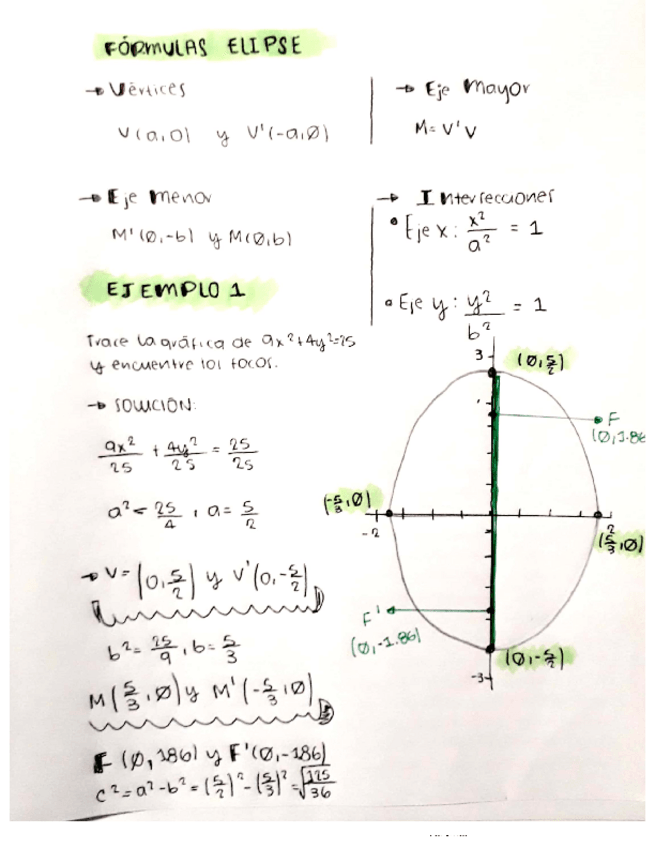 FÓRMULAS ELIPSE
→ Vértices
V(a,0) y V'(-a,0)
→ Eje mayor
M= V'V
→ Eje menor
M'(0,-b) y M(0,b)
→ Intersecciones
• Eje x: x²/a² = 1
• Eje y: y²/b² = 1
EJEMPLO 1
Trace la gráfica de 9x²+4y²=25
y encuentre los focos.
→ SOLUCIÓN:
9x²/25 + 4y²/25 = 25/25
a² = 25/4, a = 5/2
→ V = (0,5/2) y V'(0,-5/2)
b² = 25/9, b = 5/3
M(5/3,0) y M'(-5/3,0)
F (0,186) y F'(0,-186)
c²=a²-b²=(5/2)²-(5/3)²=√125/36
3
(0,5/2)
F
(0,1.86
(-5/3,0)
-2
2
(5/3,0)
F'
(0,-1.86)
(0,-5/2)
-3